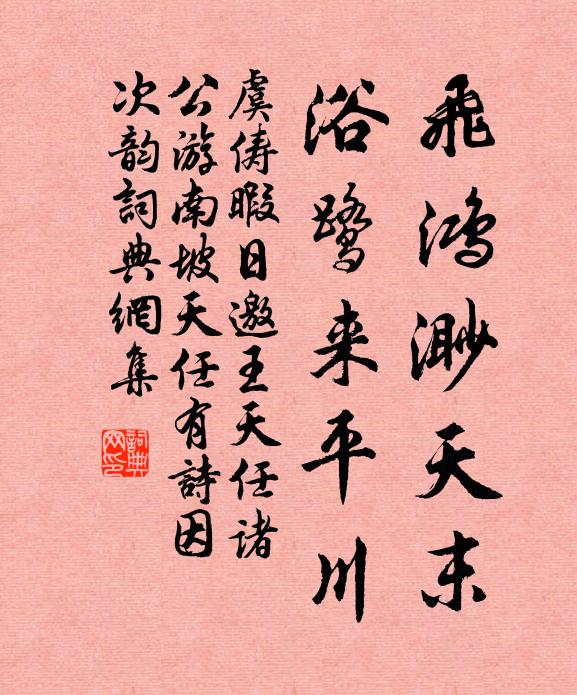 飛鴻渺天末
浴鷺来平川
虞儔暇日邀王天任诸
公游南坡天任有詩因
次韵詞典網集
詞典網印